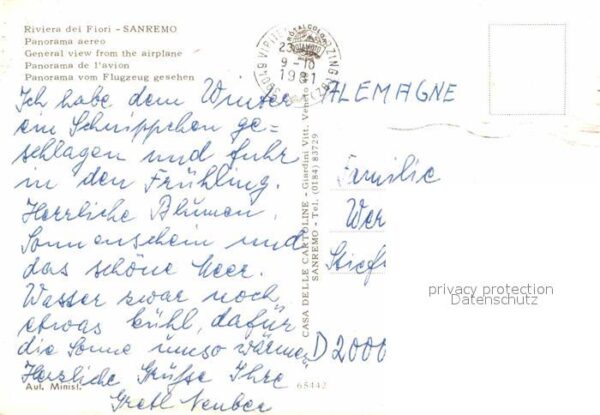 Riviera dei Fiori - SANREMO
Panorama aereo
General view from the airplane
Panorama de l'avion
Panorama vom Flugzeug gesehen
Ich habe dem Winter
ein Schnippchen ge=
schlagen und fuhr
in den Frühling.
Herrliche Blumen,
Sonnenschein und
das schöne Meer.
Wasser zwar noch
etwas kühl, dafür
die Sonne umso wärmer
Herzliche Grüße Ihre
Gretl
Aut. Minist.
65442
CASA DELLE CARTOLINE - Giardini Vitt. Veneto
SANREMO - Tel. (0184) 83729
23
9-18
1981
ALEMAGNE
Familie
Wer
Stief
D 2000
privacy protection
Datenschutz